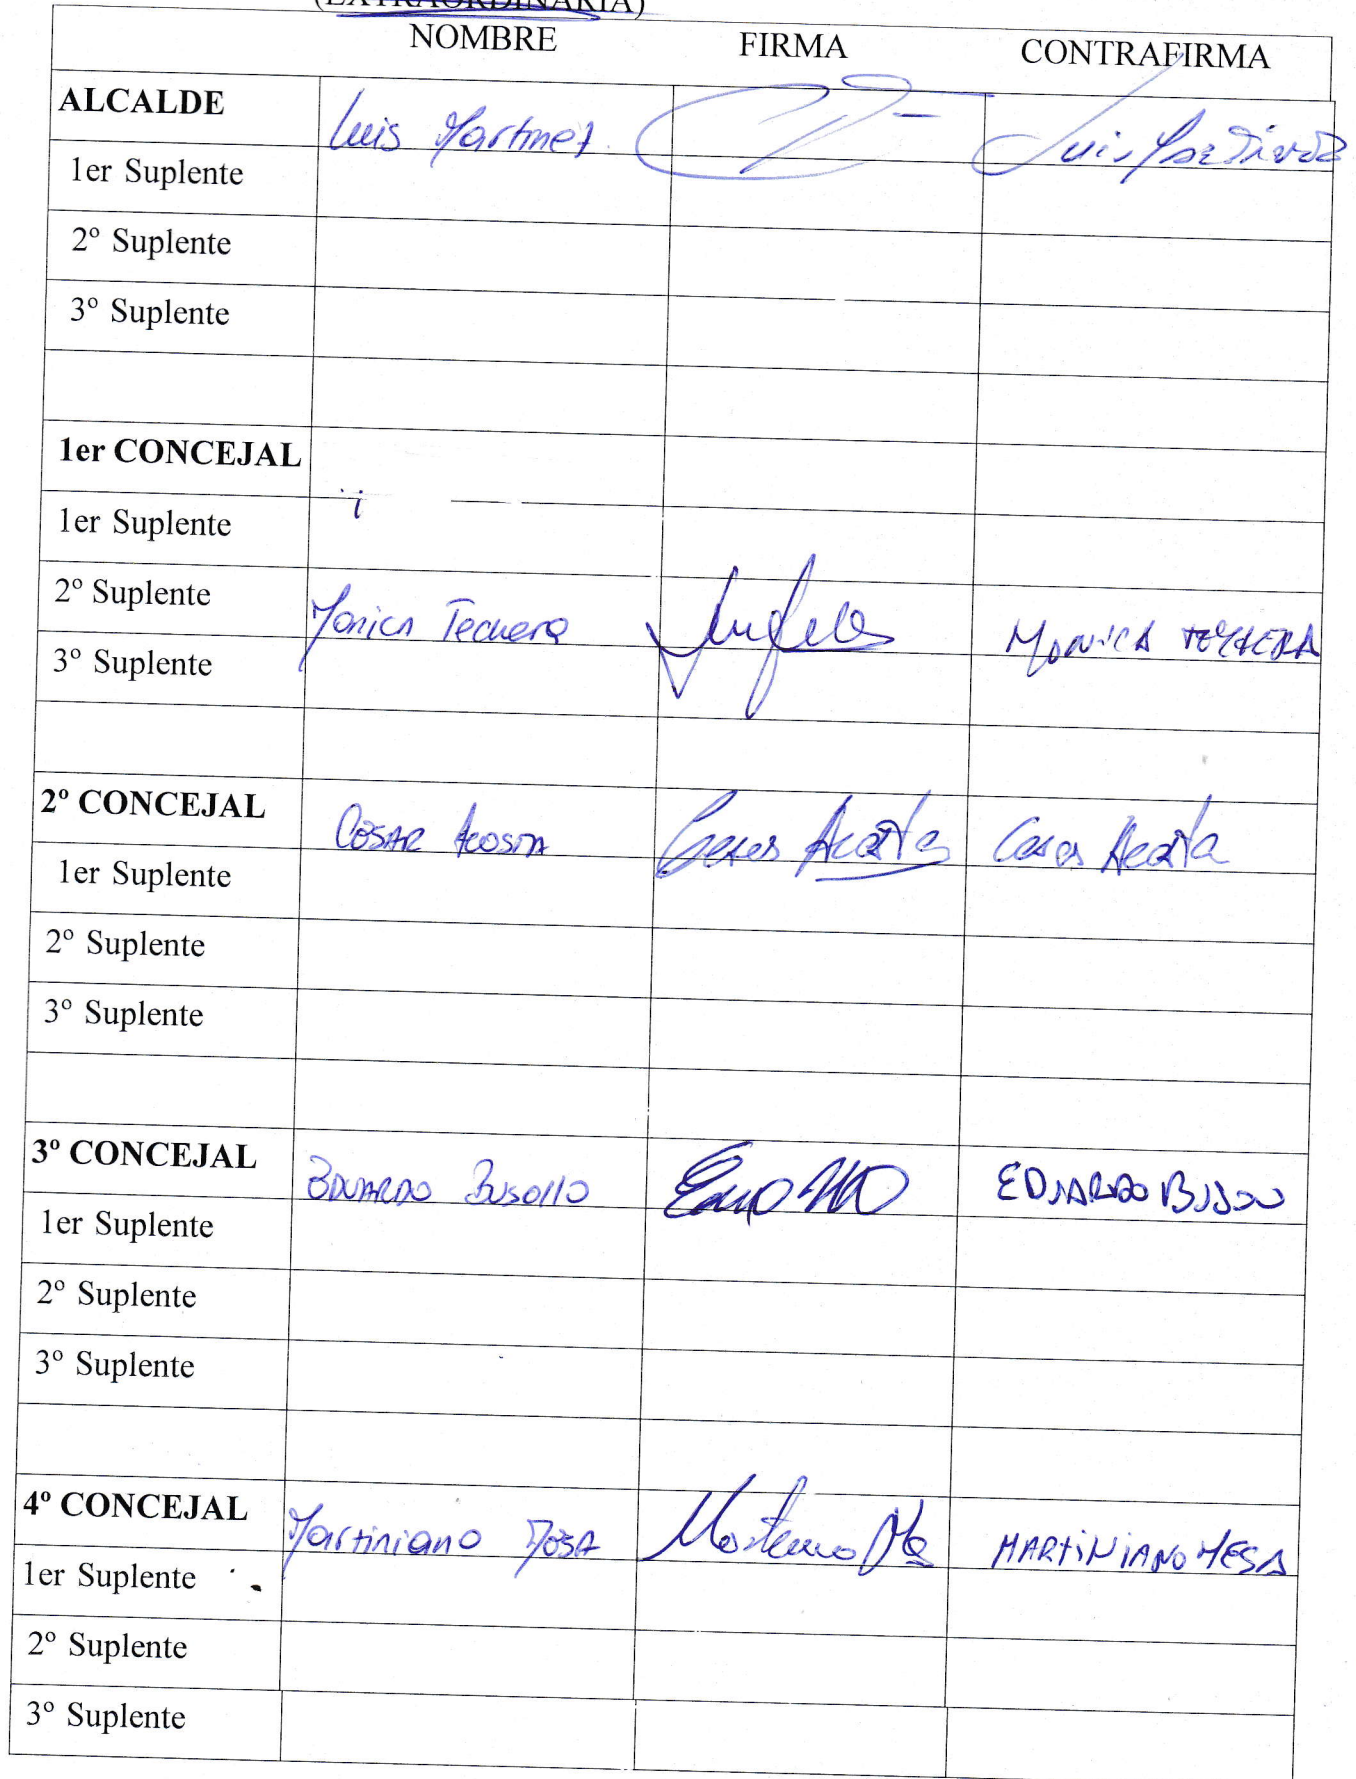 (EXTRAORDINARIA)
NOMBRE FIRMA CONTRAFIRMA
ALCALDE Luis Martinez
1er Suplente
2º Suplente
3º Suplente
1er CONCEJAL
1er Suplente
2º Suplente Monica Techera MONICA TECHERA
3º Suplente
2º CONCEJAL CESAR ACOSTA Cesar Acosta Cesar Acosta
1er Suplente
2º Suplente
3º Suplente
3º CONCEJAL EDUARDO EDUARDO
1er Suplente
2º Suplente
3º Suplente
4º CONCEJAL Martiniano MESA MARTINIANO MESA
1er Suplente
2º Suplente
3º Suplente